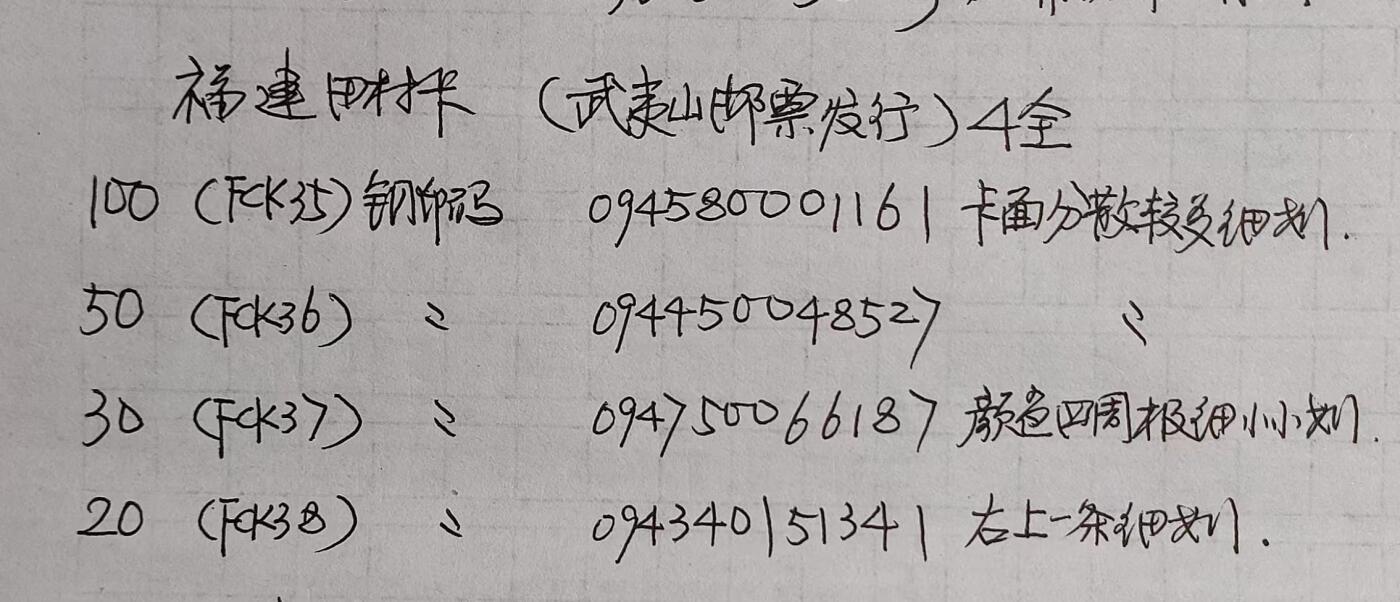 福建田村卡 (武夷山邮票发行) 4全
100 (FCK35) 钢印码 0945800001161 卡面分散较多细划.
50 (FCK36) 〃 0944500048527 〃
30 (FCK37) 〃 0947500066187 颜色四周极细小小划.
20 (FCK38) 〃 094340151341 右上一条细划.